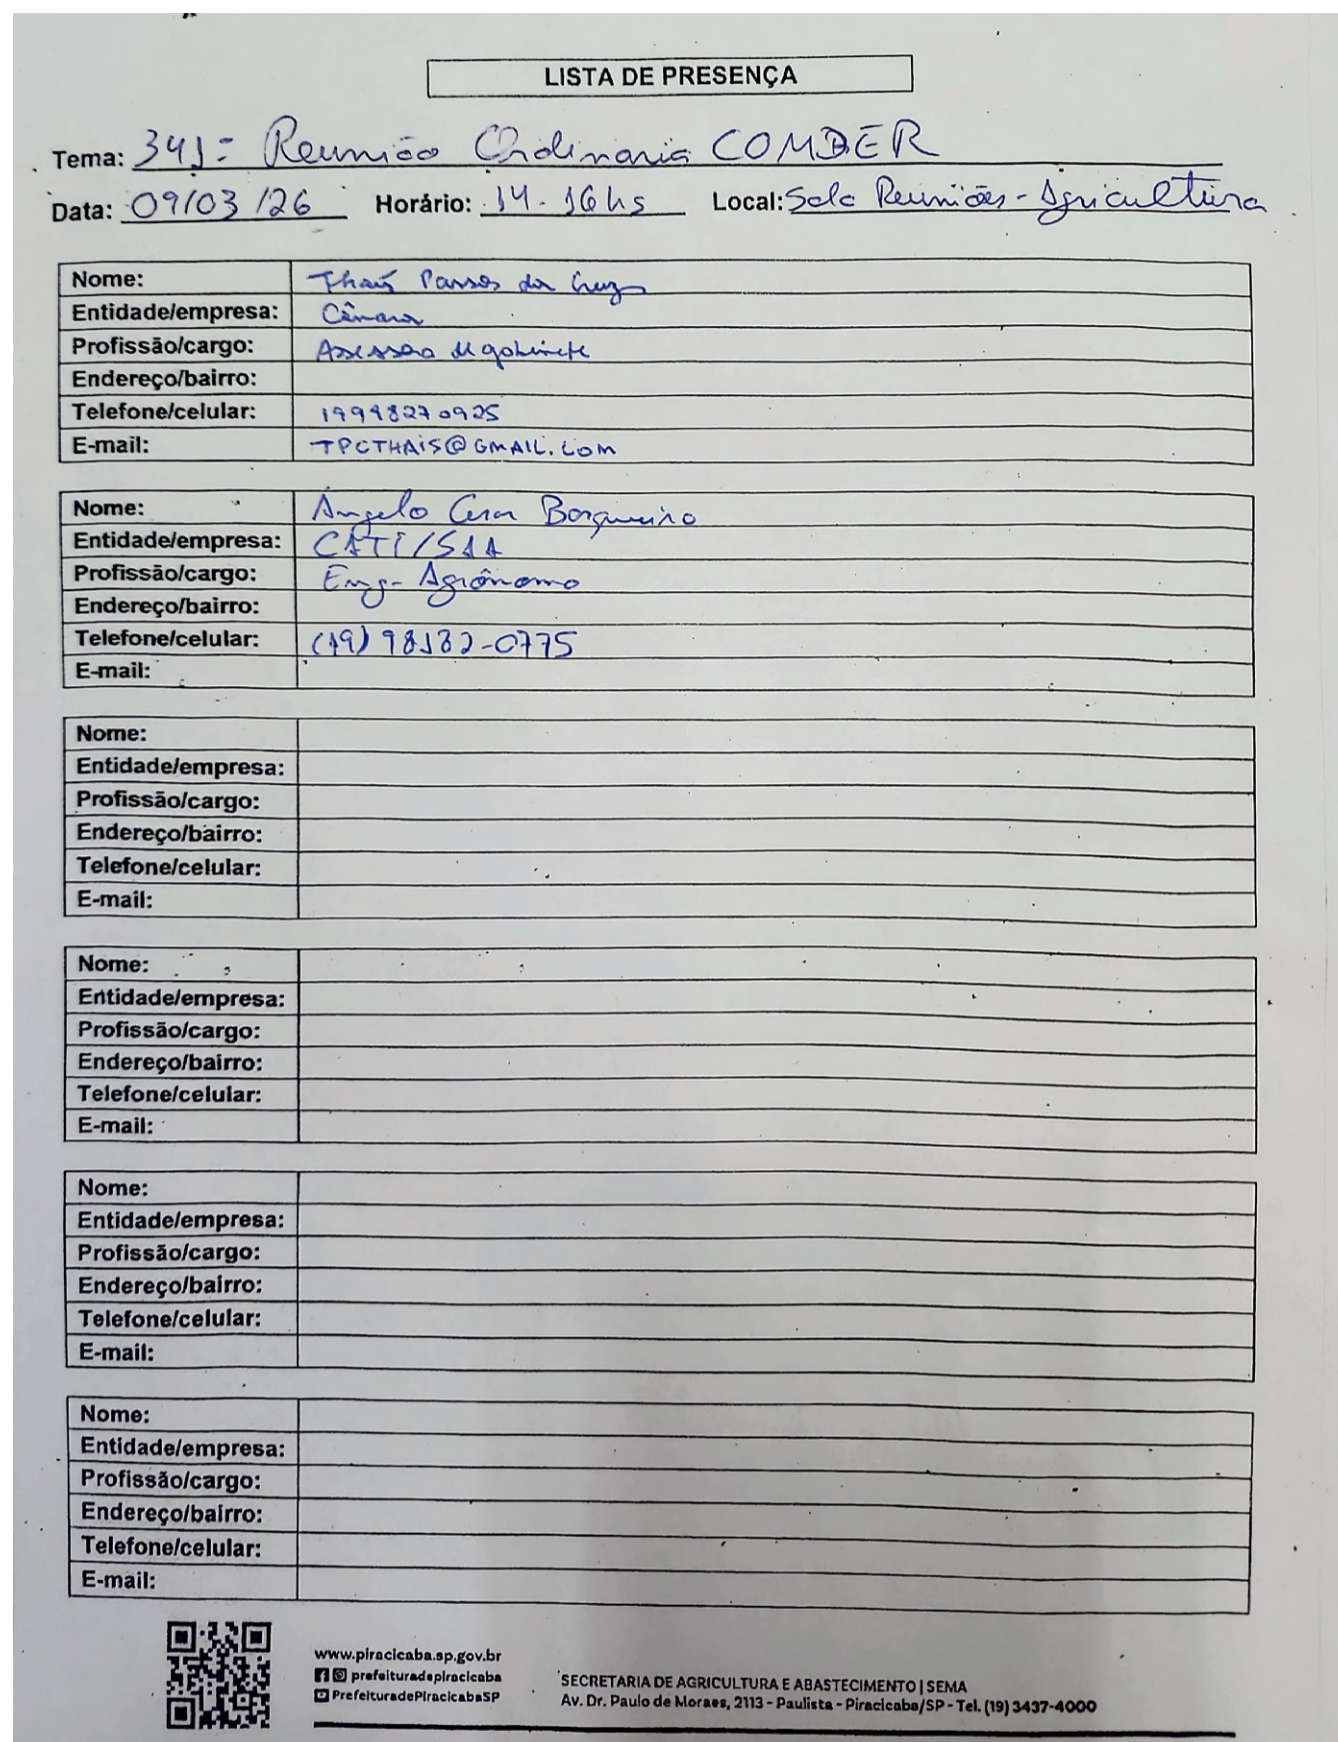 LISTA DE PRESENÇA
Tema: 341ª Reunião Ordinaria COMDER
Data: 09/03/26 Horário: 14-16hs Local: Sala Reuniões - Agricultura
Nome: Thaís Passos da Cruz
Entidade/empresa: Câmara
Profissão/cargo: Assessora de gabinete
Endereço/bairro:
Telefone/celular: 19998270925
E-mail: TPCTHAIS@GMAIL.COM
Nome: Angelo Cesar Bosqueiro
Entidade/empresa: CATI/SAA
Profissão/cargo: Eng- Agrônomo
Endereço/bairro:
Telefone/celular: (19) 98182-0775
E-mail:
Nome:
Entidade/empresa:
Profissão/cargo:
Endereço/bairro:
Telefone/celular:
E-mail:
Nome:
Entidade/empresa:
Profissão/cargo:
Endereço/bairro:
Telefone/celular:
E-mail:
Nome:
Entidade/empresa:
Profissão/cargo:
Endereço/bairro:
Telefone/celular:
E-mail:
Nome:
Entidade/empresa:
Profissão/cargo:
Endereço/bairro:
Telefone/celular:
E-mail:
www.piracicaba.sp.gov.br
prefeituradepiracicaba
PrefeituradePiracicabaSP
SECRETARIA DE AGRICULTURA E ABASTECIMENTO | SEMA
Av. Dr. Paulo de Moraes, 2113 - Paulista - Piracicaba/SP - Tel. (19) 3437-4000